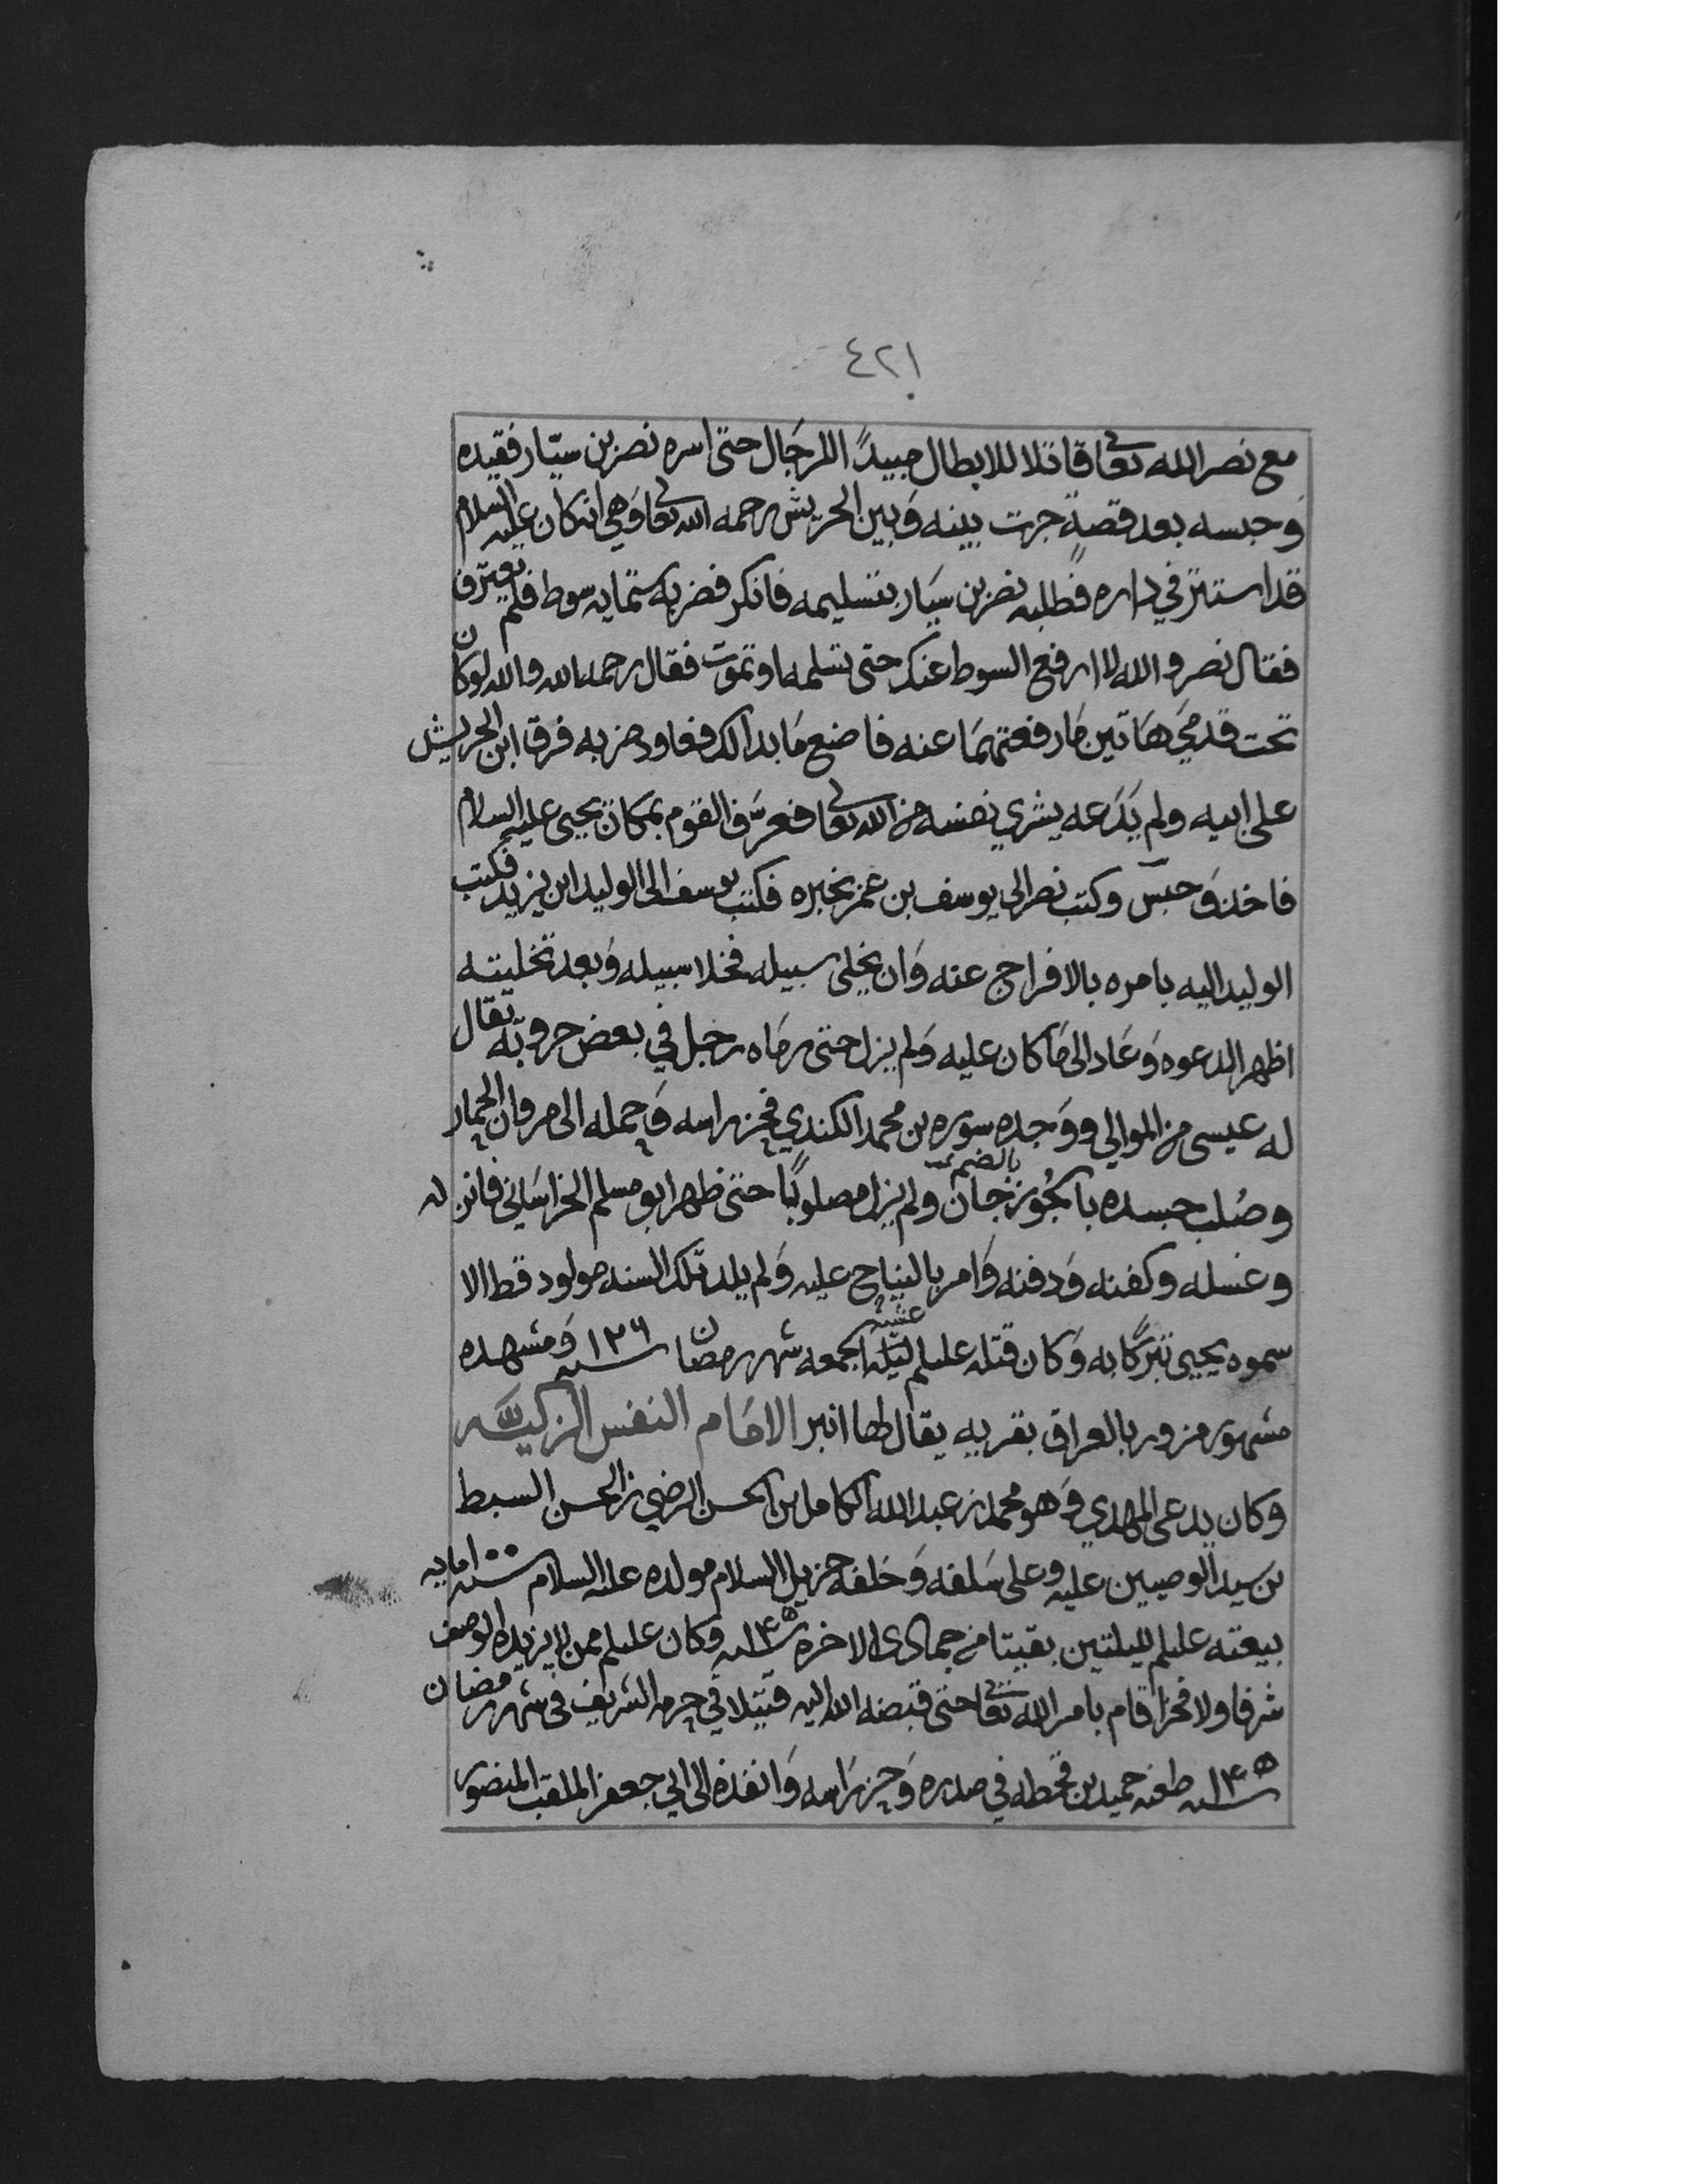 ٤٢١
مع نصر الله تعالى قاتلا للابطال مبيدًا اللرجال حتى اسره نصر بن سيّار فقيده
وحبسه بعد قصةٍ جرت بينه وبين الحريش رحمه الله تعالى وهي انه كان عليه السلام
قد استتر في داره فطلبه نصر بن سيار بتسليمه فانكر فضربه ستمايه سوط فلم يعترف
فقال نصر والله لا ارفع السوط عنك حتى تسلمه او تموت فقال رحمه الله والله لو كان
تحت قدمي هاتين ما رفعتهما عنه فاصنع ما بدا لك فعاود ضربه فرق ابن الحريش
على ابيه ولم يدعه يشري نفسه من الله تعالى فعرّف القوم بمكان يحيى عليه السلام
فاخذ وحبس وكتب نصر الى يوسف بن عمر يخبره فكتب يوسف الى الوليد ابن يزيد فكتب
الوليد اليه يامره بالافراج عنه وان يخلي سبيله فخلا سبيله وبعد تخليته
اظهر الدعوه وعاد الى ما كان عليه ولم يزل حتى رماه رجل في بعض حروبه يقال
له عيسى من الموالي ووجده سوره بن محمد الكندي فحز راسه وحمله الى مروان الحمار
وصُلب جسده بالجُوزجان بالضم ولم يزل مصلوبًا حتى ظهر ابو مسلم الخراساني فانزله
وغسله وكفنه ودفنه وامر بالنياح عليه ولم يلد تلك السنه مولود قط الا
سموه يحيى تبركًا به وكان قتله عليلم ليلة الجمعه عشية شهر رمضان سنه ١٢٦ ومشهده
مشهور مزور بالعراق بقريه يقال لها انبر الامام النفس الزكيّه
وكان يدعى المهدي وهو محمد بن عبد الله الكامل بن الحسن الرضي بن الحسن السبط
بن سيد الوصيين عليه وعلى سلفه وخلفه جزيل السلام مولده عليه السلام سنه ١٠٠ مايه
بيعته عليلم لليلتين بقيتا من جمادى الاخره سنه ١٤٥ وكان عليلم ممن لا يزيده الوصف
شرفا ولا فخرا قام بامر الله تعالى حتى قبضه الله اليه قتيلا في حرمه الشريف في شهر رمضان
سنه ١٤٥ طعنه حميد بن قحطبه في صدره وحز راسه وانفذه الى ابي جعفر الملقب المنصور